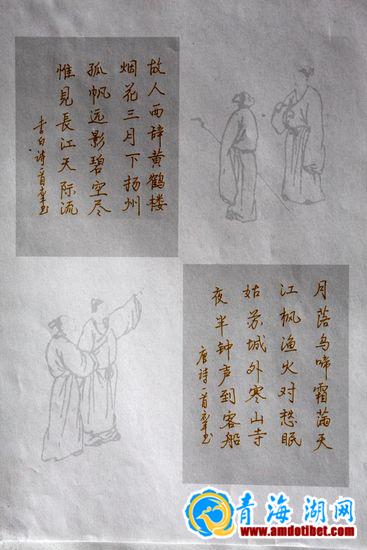 故人西辞黄鹤楼
烟花三月下扬州
孤帆远影碧空尽
惟見長江天际流
李白诗一首书
月落乌啼霜满天
江枫渔火对愁眠
姑苏城外寒山寺
夜半钟声到客船
唐诗一首书
青海湖网
www.amdotibet.com